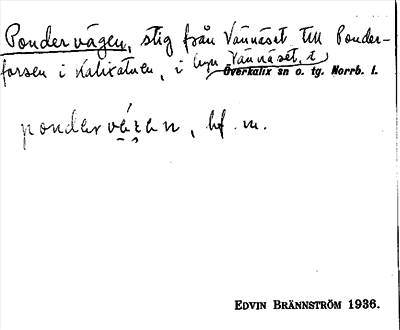 Pondervägen, stig från Vännäset till Ponder-
forsen i Kalixälven, i byn Vännäset, i
Överkalix sn o. tg. Norrb. l.
pondervä́gen, bf. m.
EDVIN BRÄNNSTRÖM 1936.